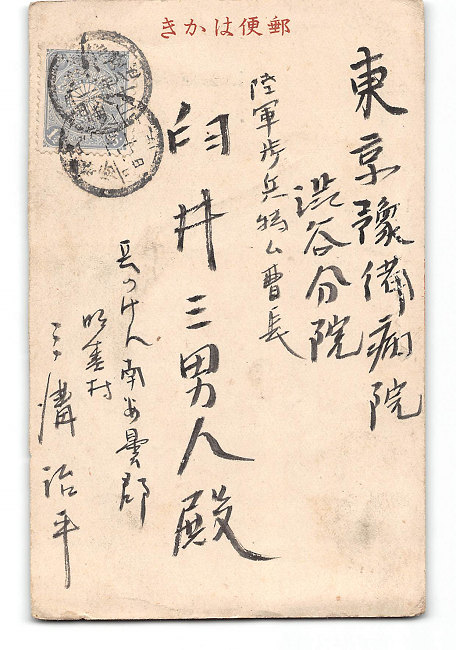 郵便はかき
東京豫備病院
渋谷分院
陸軍歩兵特ム曹長
臼井三男人殿
長のけん南安曇郡
明盛村
三溝治平